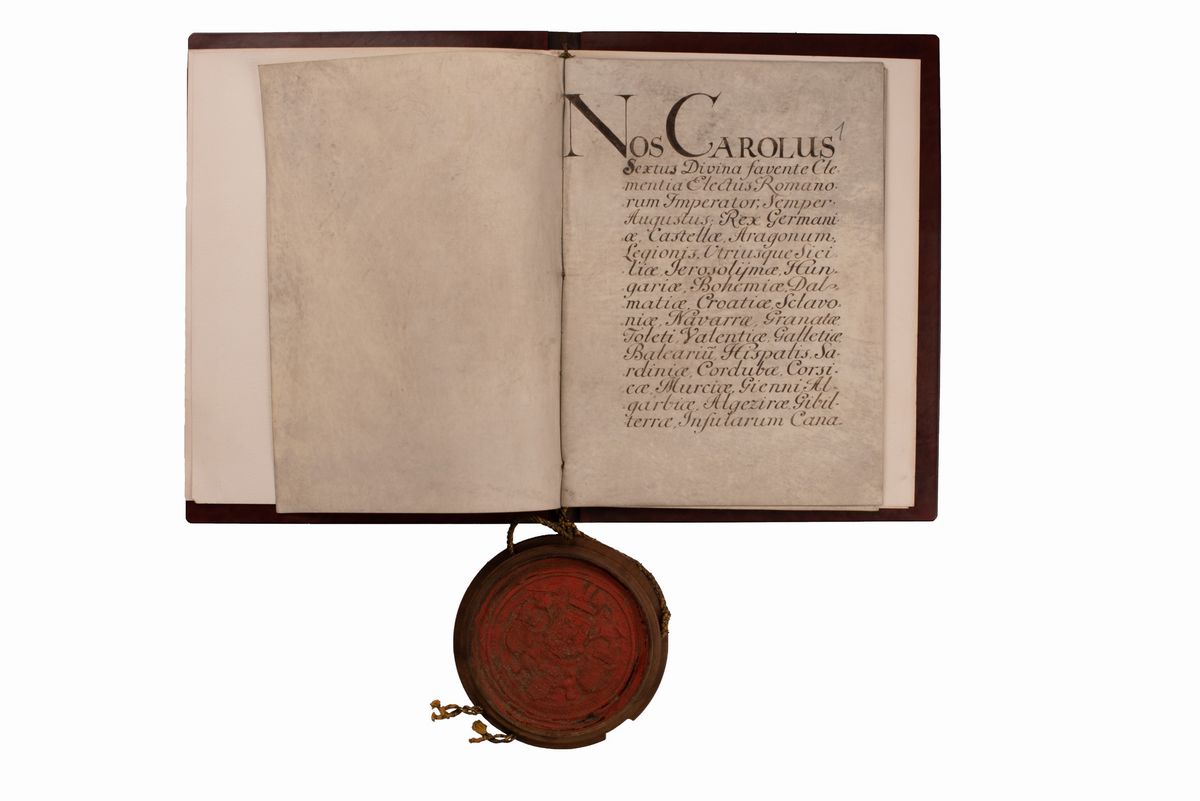 NOS CAROLUS 1
Sextus Divina favente Cle-
mentia Electus Romano-
rum Imperator, Semper
Augustus; Rex Germani-
æ, Castellæ, Aragonum,
Legionis, Utriusque Sici-
liæ, Ierosolÿmæ, Hun-
gariæ, Bohemiæ, Dal-
matiæ, Croatiæ, Sclavo-
niæ, Navarræ, Granatæ
Toleti, Valentiæ, Galletiæ
Balcariũ, Hispalis, Sa-
rdiniæ, Cordubæ, Corsi-
cæ, Murciæ, Gienni Al-
garbiæ, Algeziræ, Gibil-
terræ, Inſularum Cana-